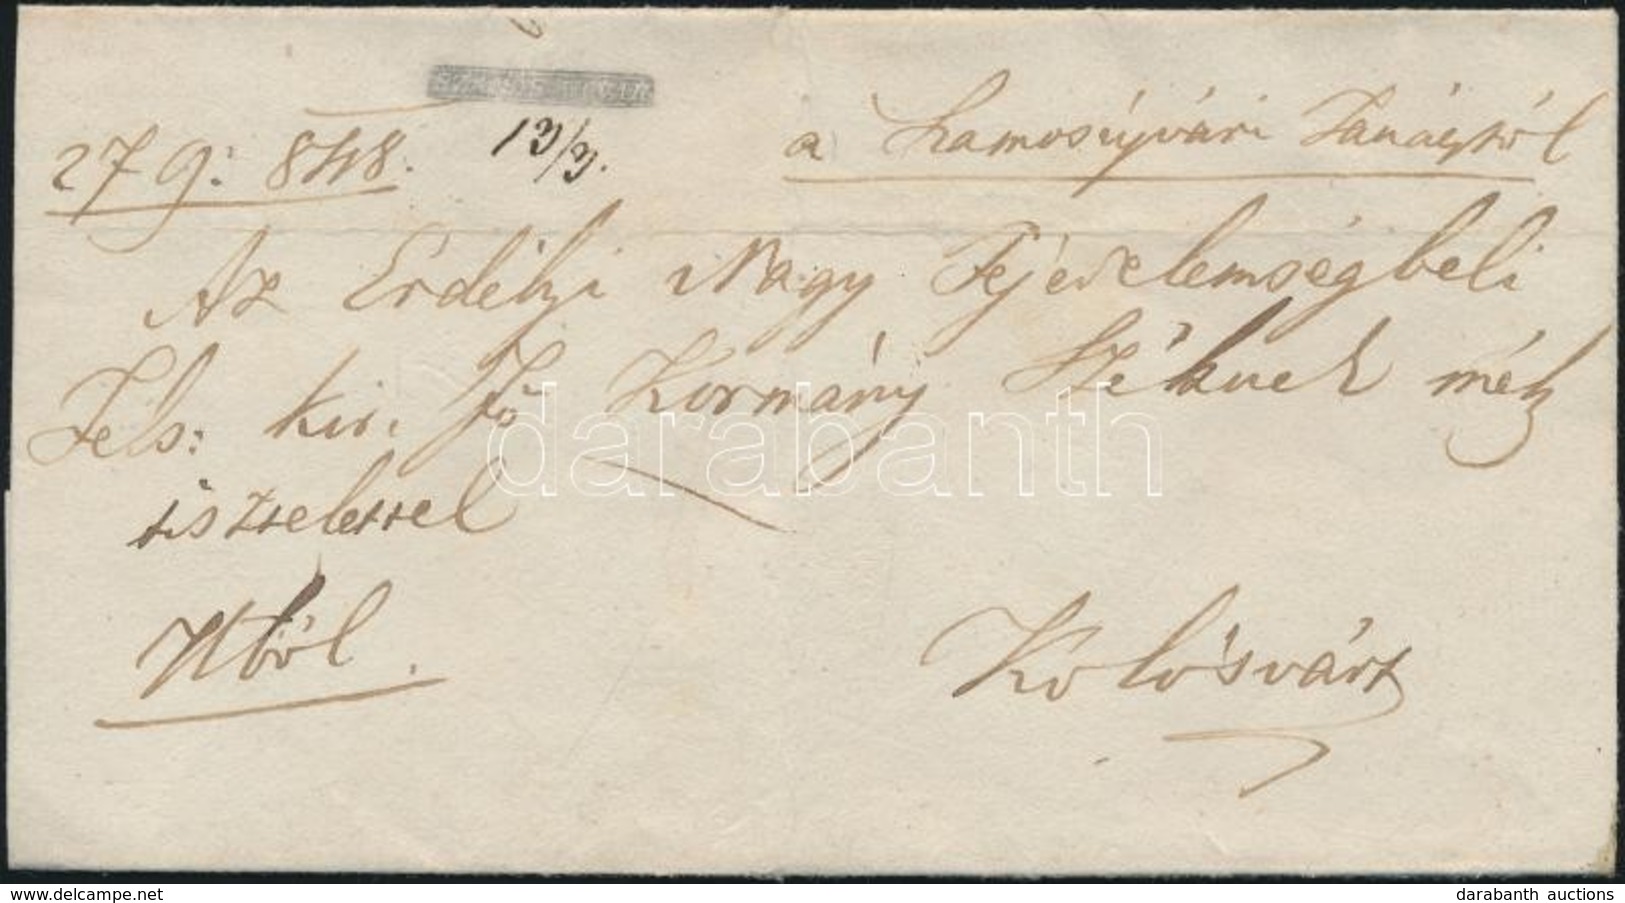 27 g: 848. 13/9. a Szamosújvári Tanácstól
Az Érdélyi Nagy Fejedelemségbeli
Fels: kir. Fő Kormány Széknek mély
tisztelettel
Kolósvárt
darabanth
darabanth auctions